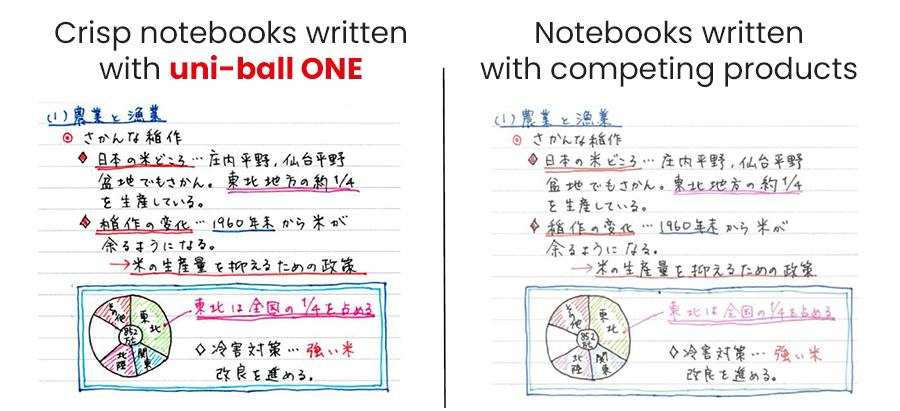 Crisp notebooks written
with uni-ball ONE
(1)農業と漁業
さかんな稲作
日本の米どころ…庄内平野,仙台平野
盆地でもさかん。東北地方の約1/4
を生産している。
稲作の変化…1960年末から米が
余るようになる。
→米の生産量を抑えるための政策
東北
関東
北陸
その他
852万t
東北は全国の1/4を占める
◇冷害対策…強い米
改良を進める。
Notebooks written
with competing products
(1)農業と漁業
さかんな稲作
日本の米どころ…庄内平野,仙台平野
盆地でもさかん。東北地方の約1/4
を生産している。
稲作の変化…1960年末から米が
余るようになる。
→米の生産量を抑えるための政策
東北
関東
北陸
その他
852万t
東北は全国の1/4を占める
◇冷害対策…強い米
改良を進める。